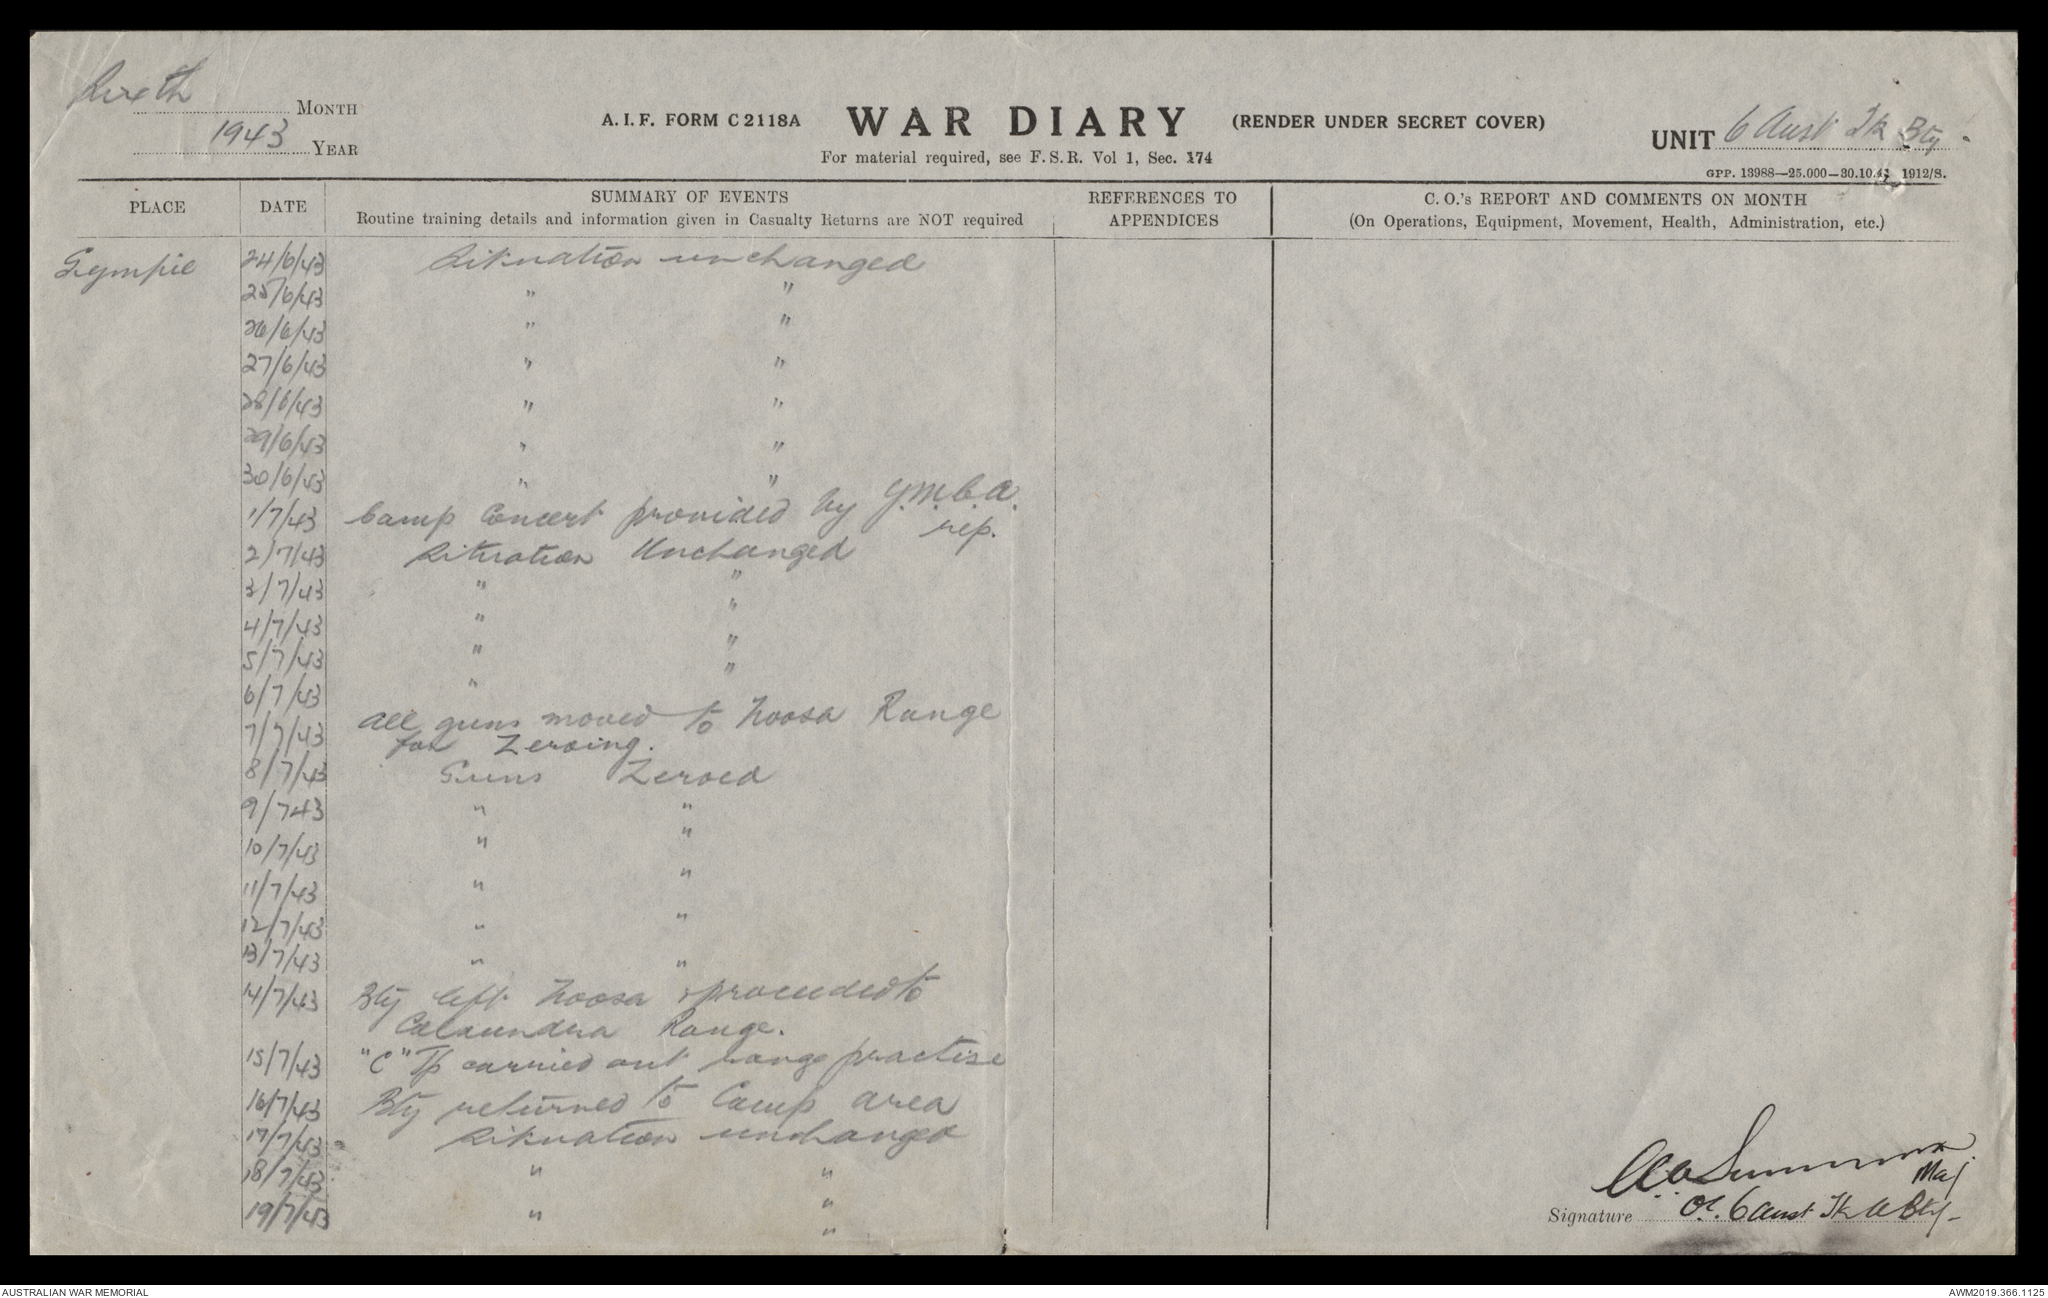 Sixth MONTH
1943 YEAR
A.I.F. FORM C2118A WAR DIARY (RENDER UNDER SECRET COVER)
For material required, see F.S.R. Vol 1, Sec. 174
UNIT 6 Aust Tk Bty.
GPP. 13988—25.000—30.10.41 1912/S.
PLACE
DATE
SUMMARY OF EVENTS
Routine training details and information given in Casualty Returns are NOT required
REFERENCES TO
APPENDICES
C. O.'s REPORT AND COMMENTS ON MONTH
(On Operations, Equipment, Movement, Health, Administration, etc.)
Gympie 24/6/43 Situation unchanged
25/6/43 " "
26/6/43 " "
27/6/43 " "
28/6/43 " "
29/6/43 " "
30/6/43 " "
1/7/43 Camp Concert provided by Y.M.C.A.
rep.
2/7/43 Situation Unchanged
3/7/43 " "
4/7/43 " "
5/7/43 " "
6/7/43 " "
7/7/43 All guns moved to Noosa Range
for Zeroing.
8/7/43 Guns Zeroed
9/743 " "
10/7/43 " "
11/7/43 " "
12/7/43 " "
13/7/43 " "
14/7/43 Bty left Noosa & proceeded to
Caloundra Range.
15/7/43 "C" Tp carried out range practise
16/7/43 Bty returned to Camp area
17/7/43 Situation unchanged
18/7/43 " "
19/7/43 " "
"
Maj
Signature OC. 6 Aust Tk A Bty-
AUSTRALIAN WAR MEMORIAL
AWM2019.366.1125